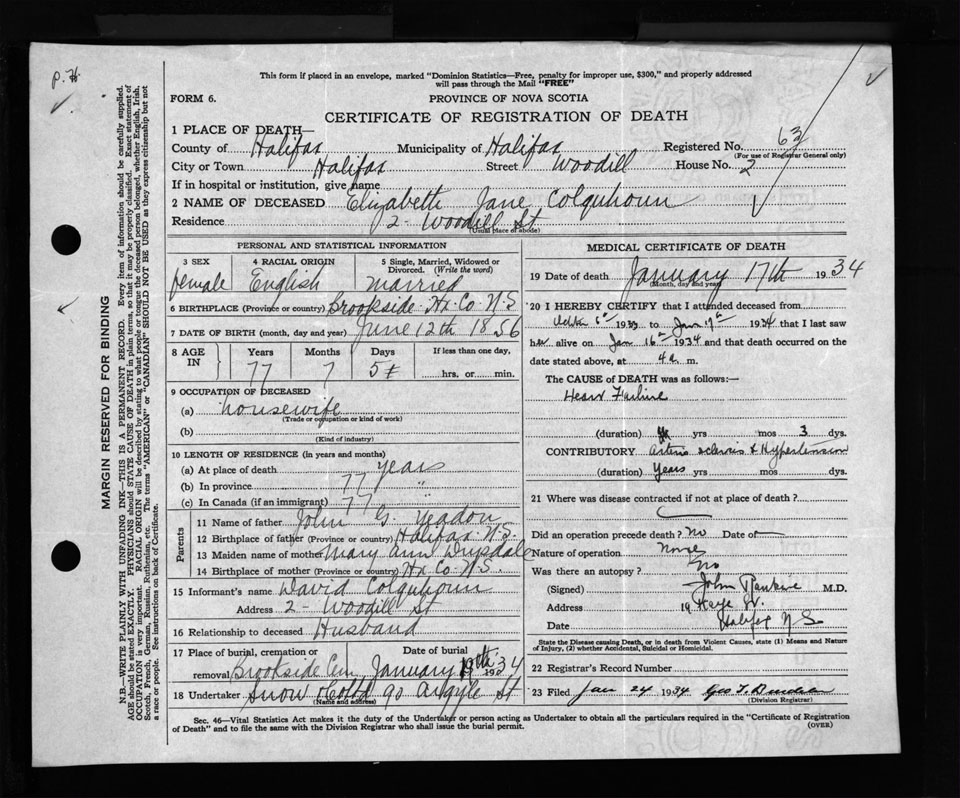 P.H.
This form if placed in an envelope, marked "Dominion Statistics—Free, penalty for improper use, $300," and properly addressed
will pass through the Mail "FREE"
FORM 6.
PROVINCE OF NOVA SCOTIA
CERTIFICATE OF REGISTRATION OF DEATH
1 PLACE OF DEATH—
County of Halifax Municipality of Halifax Registered No. 63
(For use of Registrar General only)
City or Town Halifax Street Woodill House No. 2
If in hospital or institution, give name
2 NAME OF DECEASED Elizabeth Jane Colquhoun
Residence 2- Woodill St
(Usual place of abode)
PERSONAL AND STATISTICAL INFORMATION
3 SEX 4 RACIAL ORIGIN 5 Single, Married, Widowed or
Divorced. (Write the word)
female English married
6 BIRTHPLACE (Province or country) Brookside Hx. Co. N.S
7 DATE OF BIRTH (month, day and year) June 12th 1856
8 AGE IN Years Months Days If less than one day,
77 7 5 hrs. or min.
9 OCCUPATION OF DECEASED
(a) housewife
(Trade or occupation or kind of work)
(b)
(Kind of industry)
10 LENGTH OF RESIDENCE (in years and months)
(a) At place of death years
(b) In province 77 "
(c) In Canada (if an immigrant) 77
Parents
11 Name of father John G. Yeadon
12 Birthplace of father (Province or country) Halifax N.S.
13 Maiden name of mother Mary Ann
14 Birthplace of mother (Province or country) Hx Co. N.S.
15 Informant's name David Colquhoun
Address 2- Woodill St
16 Relationship to deceased Husband
17 Place of burial, cremation or Date of burial
removal Brookside Cem January 19th 1934
18 Undertaker Snow & Co Ltd 90 Argyle St
(Name and address)
MEDICAL CERTIFICATE OF DEATH
19 Date of death January 17th 1934
(Month, day and year)
20 I HEREBY CERTIFY that I attended deceased from
1933 to Jan 17th 1934 that I last saw
her alive on Jan 16th 1934 and that death occurred on the
date stated above, at 4 a. m.
The CAUSE of DEATH was as follows:—
Heart Failure
(duration) yrs mos 3 dys.
CONTRIBUTORY Arterio sclerosis & Hypertension
(duration) Years yrs mos dys.
21 Where was disease contracted if not at place of death?
Did an operation precede death? no Date of —
Nature of operation None
Was there an autopsy? No
(Signed) John Rankine M.D.
Address 19 Kaye St.
Date Halifax N S
State the Disease causing Death, or in death from Violent Causes, state (1) Means and Nature
of Injury, (2) whether Accidental, Suicidal or Homicidal.
22 Registrar's Record Number
23 Filed Jan 24 1934 Geo T.
(Division Registrar)
Sec. 46—Vital Statistics Act makes it the duty of the Undertaker or person acting as Undertaker to obtain all the particulars required in the "Certificate of Registration
of Death" and to file the same with the Division Registrar who shall issue the burial permit. (OVER)
MARGIN RESERVED FOR BINDING
N.B.—WRITE PLAINLY WITH UNFADING INK—THIS IS A PERMANENT RECORD. Every item of information should be carefully supplied.
AGE should be stated EXACTLY. PHYSICIANS should STATE CAUSE OF DEATH in plain terms, so that it may be properly classified. Exact statement of
OCCUPATION is very important. RACIAL ORIGIN will be described by stating to what people or tongue the deceased person belonged, whether English, Irish,
Scotch, French, German, Russian, Ruthenian, etc. The terms "AMERICAN" or "CANADIAN" SHOULD NOT BE USED as they express citizenship but not
a race or people. See instructions on back of Certificate.